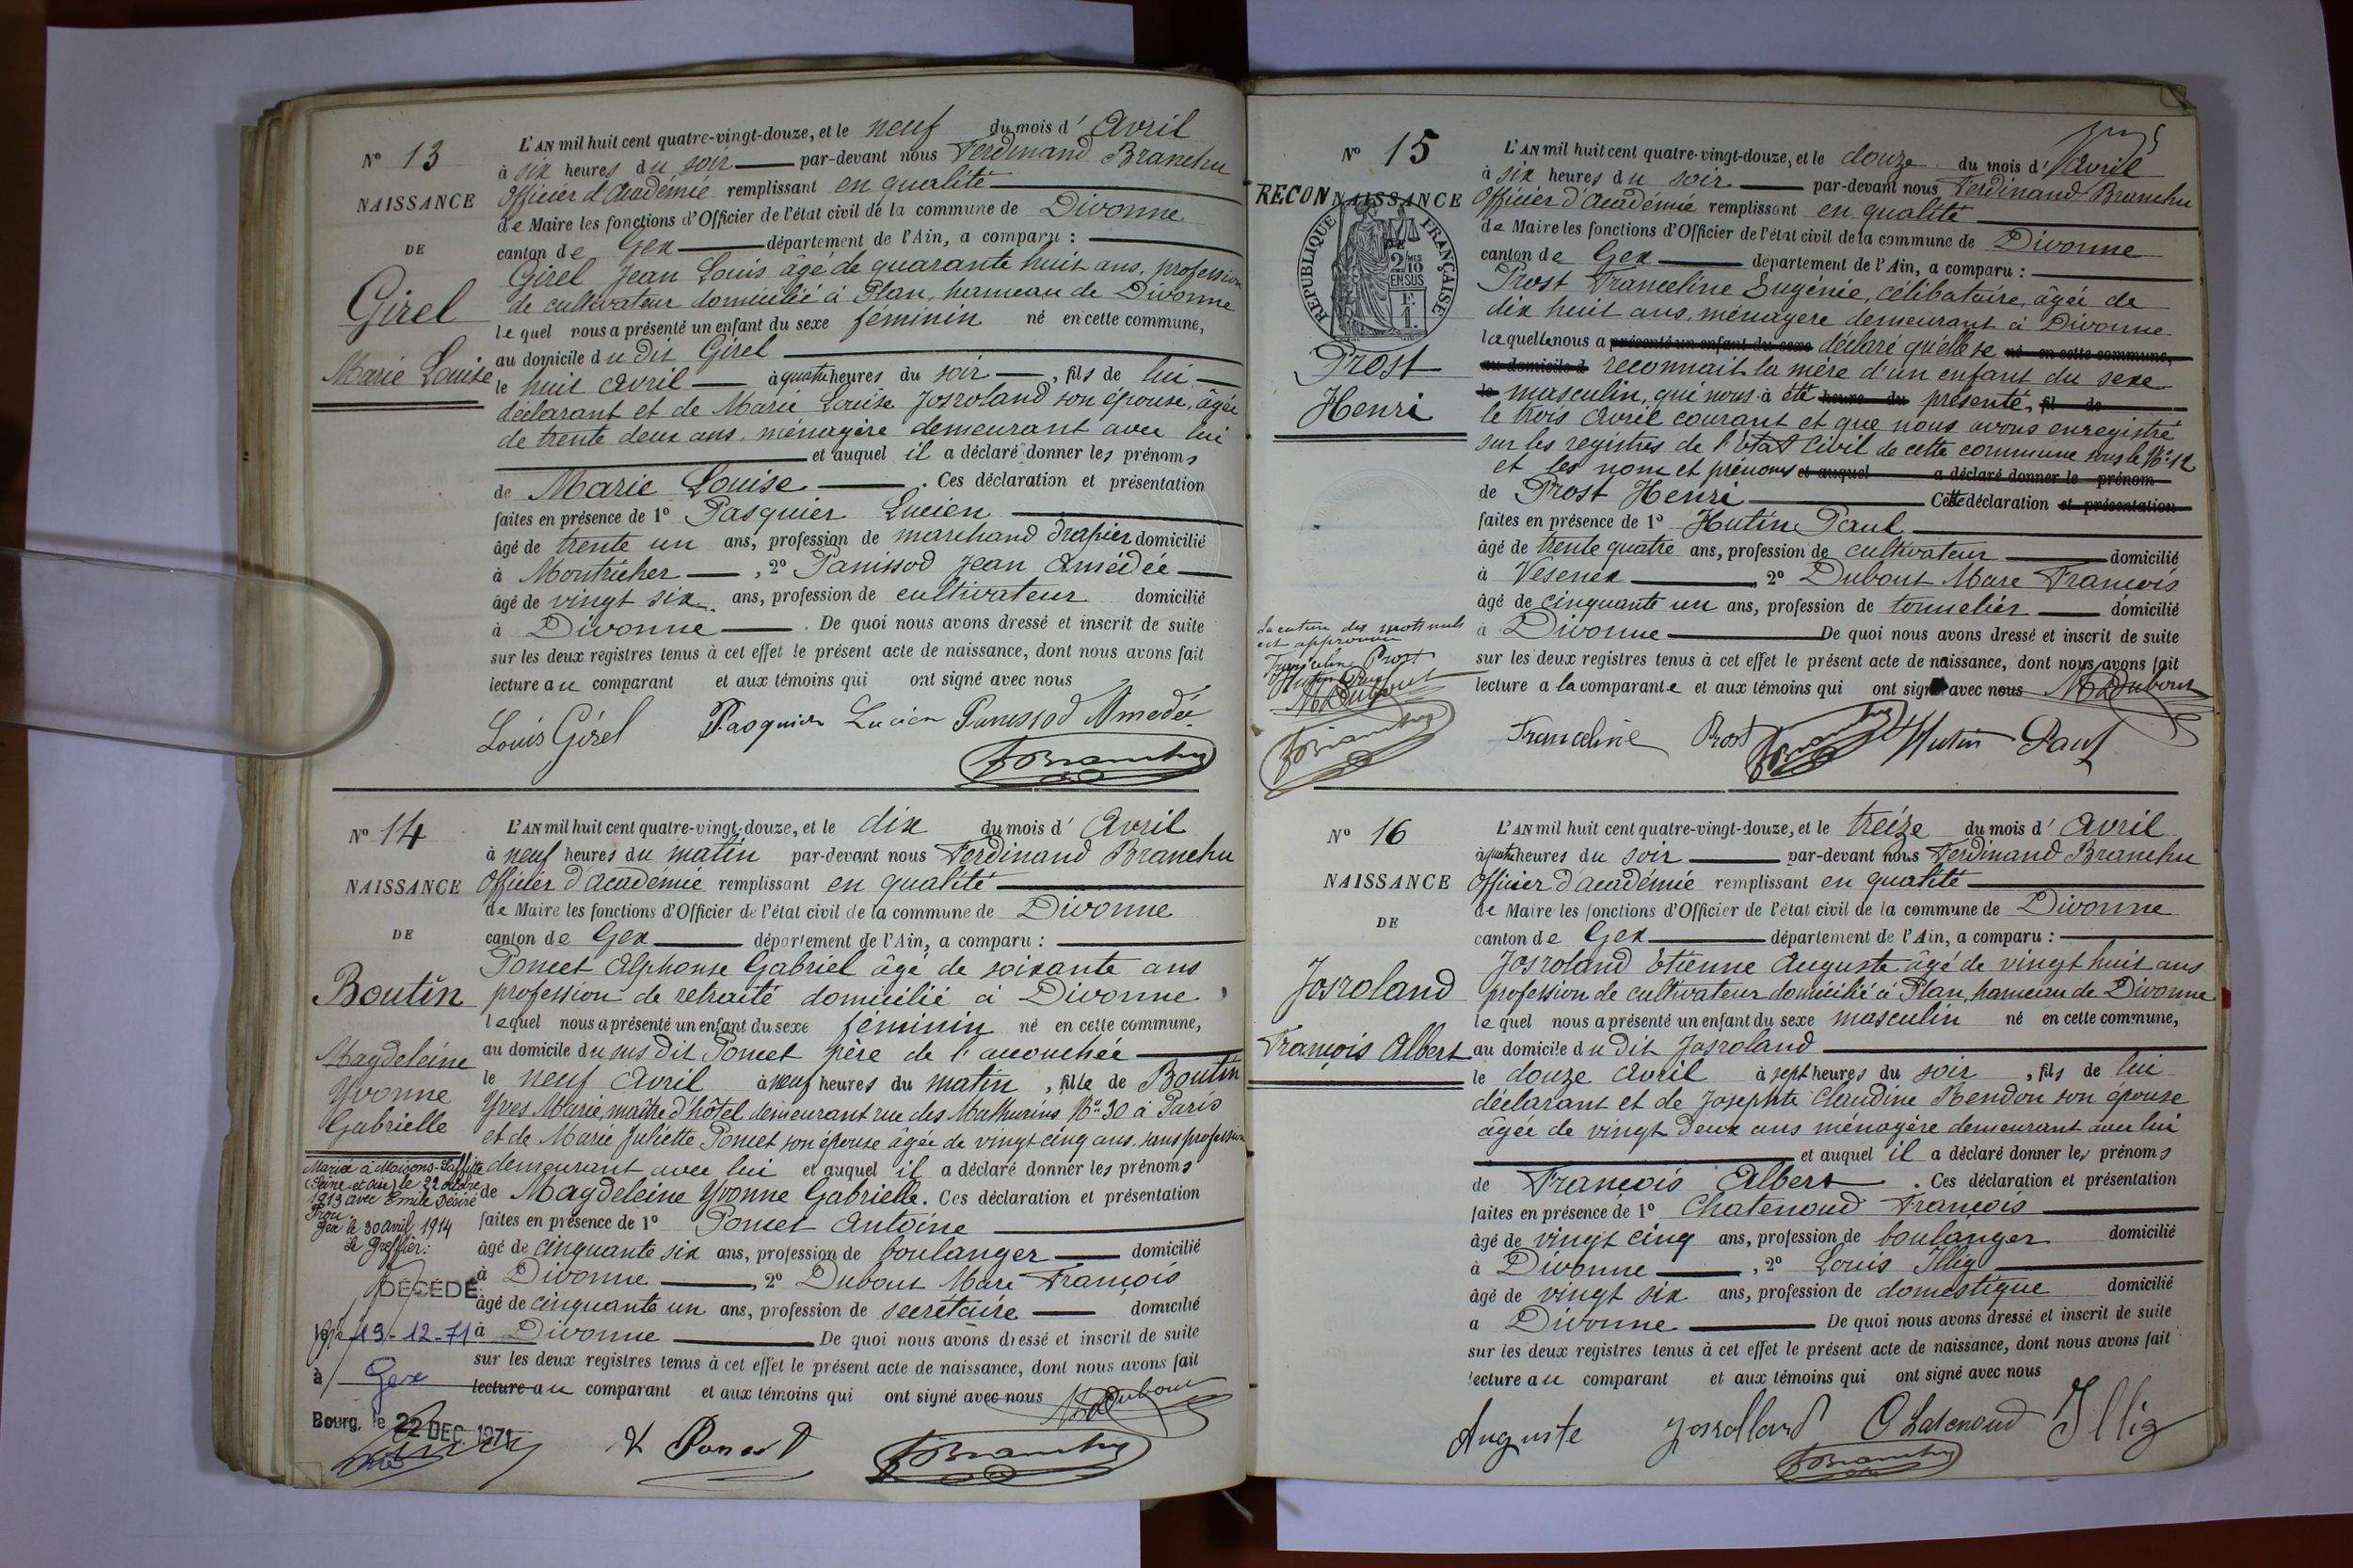 N° 13
NAISSANCE
DE
Girel
Marie Louise
L'AN mil huit cent quatre-vingt-douze, et le neuf du mois d' Avril
à six heures du soir par-devant nous Ferdinand Branchu
Officier d'Académie remplissant en qualité
de Maire les fonctions d'Officier de l'état civil de la commune de Divonne
canton de Gex département de l'Ain, a comparu :
Girel Jean Louis âgé de quarante huit ans, profession
de cultivateur domicilié à Plan, hameau de Divonne
lequel nous a présenté un enfant du sexe féminin né en cette commune,
au domicile du dit Girel
le huit Avril à quatre heures du soir , fils de lui
déclarant et de Marie Louise Josroland son épouse, âgée
de trente deux ans, ménagère demeurant avec lui
et auquel il a déclaré donner les prénoms
de Marie Louise . Ces déclaration et présentation
faites en présence de 1° Pasquier Lucien
âgé de trente un ans, profession de marchand drapier domicilié
à Montricher , 2° Panissod Jean Amédée
âgé de vingt six ans, profession de cultivateur domicilié
à Divonne . De quoi nous avons dressé et inscrit de suite
sur les deux registres tenus à cet effet le présent acte de naissance, dont nous avons fait
lecture au comparant et aux témoins qui ont signé avec nous
Louis Girel Pasquier Lucien Panissod Amédée
FBranchu
N° 14
NAISSANCE
DE
Boutin
Magdeleine
Yvonne
Gabrielle
Mariée à Maisons-Laffitte
(Seine et Oise) le 22 octobre
1913 avec Emile Désiré
Prou.
Gex le 30 avril 1914
Le Greffier:
DÉCÉDÉ
le 19-12-71
à Gex
Bourg, le 22 DEC. 1971
L'AN mil huit cent quatre-vingt-douze, et le dix du mois d' Avril
à neuf heures du matin par-devant nous Ferdinand Branchu
Officier d'Académie remplissant en qualité
de Maire les fonctions d'Officier de l'état civil de la commune de Divonne
canton de Gex département de l'Ain, a comparu :
Poncet Alphonse Gabriel âgé de soixante ans
profession de retraité domicilié à Divonne
lequel nous a présenté un enfant du sexe féminin né en cette commune,
au domicile du sus dit Poncet père de l'accouchée
le neuf Avril à neuf heures du matin , fille de Boutin
Yves Marie, maître d'hôtel demeurant rue des Mathurins N° 30 à Paris
et de Marie Juliette Poncet son épouse âgée de vingt cinq ans, sans profession
demeurant avec lui et auquel il a déclaré donner les prénoms
de Magdeleine Yvonne Gabrielle. Ces déclaration et présentation
faites en présence de 1° Poncet Antoine
âgé de cinquante six ans, profession de boulanger domicilié
à Divonne , 2° Dubout Marc François
âgé de cinquante un ans, profession de secrétaire domicilié
à Divonne De quoi nous avons dressé et inscrit de suite
sur les deux registres tenus à cet effet le présent acte de naissance, dont nous avons fait
lecture au comparant et aux témoins qui ont signé avec nous MDubout
Poncet FBranchu
N° 15
RECONNAISSANCE
DE
REPUBLIQUE FRANÇAISE
2/10 MES EN SUS
Prost
Henri
La rature des mots nuls
est approuvée
Franceline Prost
Hutin Paul
MDubout
FBranchu
L'AN mil huit cent quatre-vingt-douze, et le douze du mois d' Avril
à six heures du soir par-devant nous Ferdinand Branchu
Officier d'Académie remplissant en qualité
de Maire les fonctions d'Officier de l'état civil de la commune de Divonne
canton de Gex département de l'Ain, a comparu :
Prost Franceline Eugénie, célibataire, âgée de
dix huit ans, ménagère demeurant à Divonne
laquelle nous a présenté un enfant du sexe déclaré qu'elle se né en cette commune,
au domicile d reconnait la mère d'un enfant du sexe
le masculin, qui nous a été heure du présenté, fil de
le trois Avril courant et que nous avons enregistré
sur les registres de l'Etat Civil de cette commune sous le N° 12
et les nom et prénoms et auquel a déclaré donner le prénom
de Prost Henri Cette déclaration et présentation
faites en présence de 1° Hutin Paul
âgé de trente quatre ans, profession de cultivateur domicilié
à Vesenex 2° Dubout Marc François
âgé de cinquante un ans, profession de tonnelier domicilié
à Divonne De quoi nous avons dressé et inscrit de suite
sur les deux registres tenus à cet effet le présent acte de naissance, dont nous avons fait
lecture a la comparante et aux témoins qui ont signé avec nous MDubout
Franceline Prost FBranchu Hutin Paul
N° 16
NAISSANCE
DE
Josroland
François Albert
L'AN mil huit cent quatre-vingt-douze, et le treize du mois d' Avril
à quatre heures du soir par-devant nous Ferdinand Branchu
Officier d'Académie remplissant en qualité
de Maire les fonctions d'Officier de l'état civil de la commune de Divonne
canton de Gex département de l'Ain, a comparu :
Josroland Etienne Auguste âgé de vingt huit ans
profession de cultivateur domicilié à Plan, hameau de Divonne
lequel nous a présenté un enfant du sexe masculin né en cette commune,
au domicile du dit Josroland
le douze Avril à sept heures du soir , fils de lui
déclarant et de Josephte Claudine Rendon son épouse
âgée de vingt deux ans ménagère demeurant avec lui
et auquel il a déclaré donner les prénoms
de François Albert . Ces déclaration et présentation
faites en présence de 1° Chatenoud François
âgé de vingt cinq ans, profession de boulanger domicilié
à Divonne , 2° Louis Illig
âgé de vingt six ans, profession de domestique domicilié
a Divonne De quoi nous avons dressé et inscrit de suite
sur les deux registres tenus à cet effet le présent acte de naissance, dont nous avons fait
lecture au comparant et aux témoins qui ont signé avec nous
Auguste Josrolland Chatenoud Illig
FBranchu